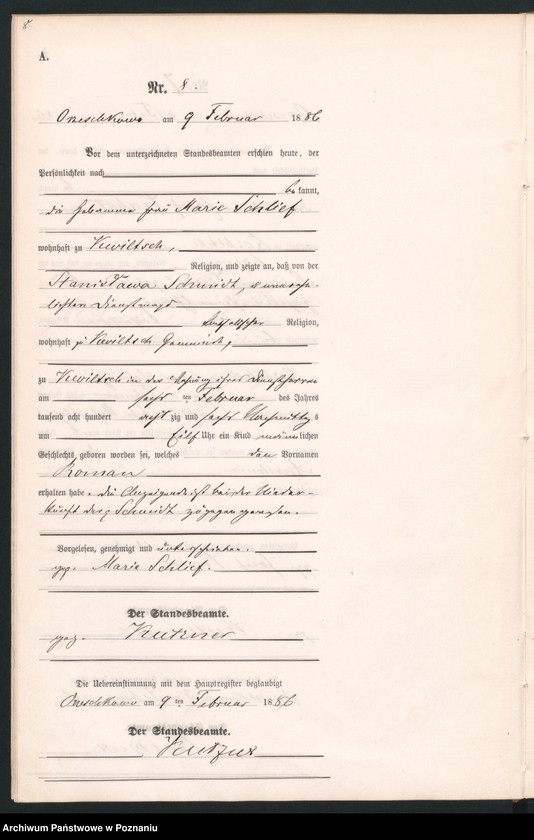 8.
A.
Nr. 8.
Orzeschkowo am 9 Februar 1886
Vor dem unterzeichneten Standesbeamten erschien heute, der
Persönlichkeit nach
bekannt,
die Hebamme Frau Marie Schlief
wohnhaft zu Kwiltsch,
Religion, und zeigte an, daß von der
Stanisława Schmidt, unverehe-
lichten Dienstmagd
katholischer Religion,
wohnhaft zu Kwiltsch Gemeinde,
zu Kwiltsch in der Wohnung ihres Dienstherrn
am sechsten Februar des Jahres
tausend acht hundert achtzig und sechs Nachmittags
um Eilf Uhr ein Kind männlichen
Geschlechts geboren worden sei, welches den Vornamen
Roman
erhalten habe. Die Anzeigende ist bei der Nieder-
kunft der Schmidt zugegen gewesen.
Vorgelesen, genehmigt und unterschrieben.
gez. Marie Schlief.
Der Standesbeamte.
gez.
Die Uebereinstimmung mit dem Hauptregister beglaubigt
Orzeschkowo am 9ten Februar 1886
Der Standesbeamte.
Archiwum Państwowe w Poznaniu